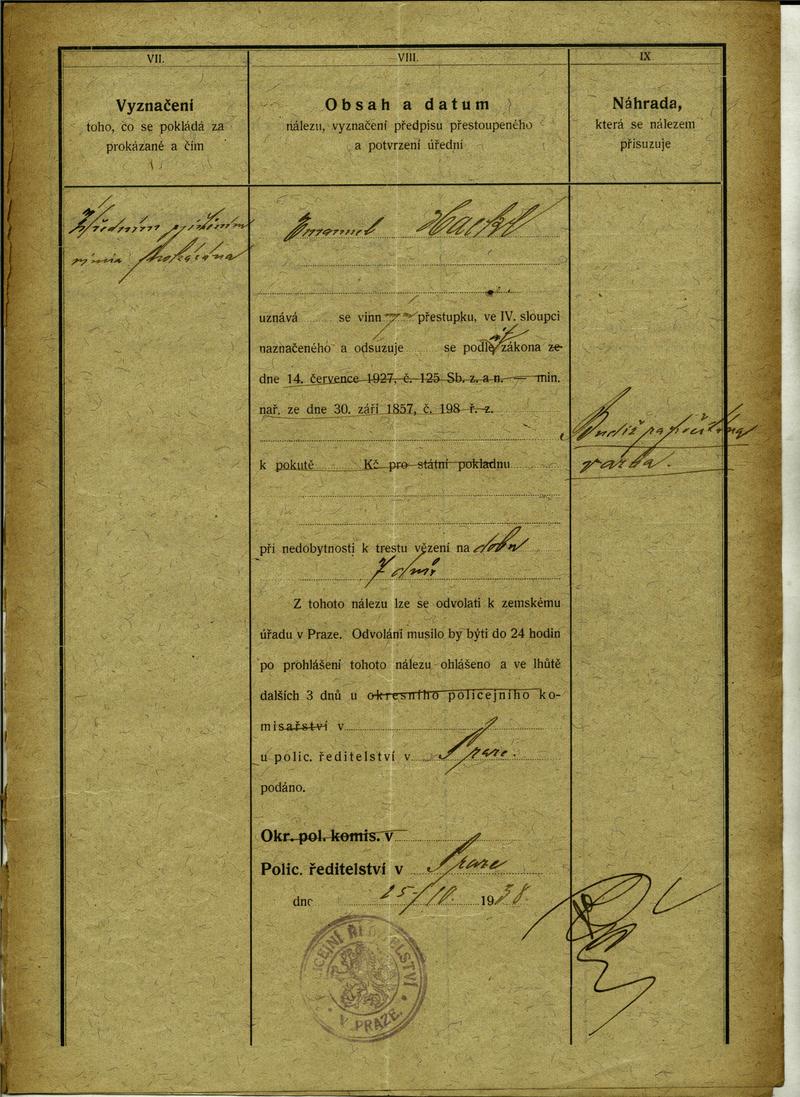 VII.
Vyznačení
toho, čo se pokládá za
prokázané a čím
Úředním zjištěním
vina prokázána
VIII.
Obsah a datum
nálezu, vyznačení předpisu přestoupeného
a potvrzení úřední
Emanuel Hackl
uznává se vinn přestupku, ve IV. sloupci
naznačeného a odsuzuje se podle zákona ze
dne 14. července 1927, č. 125 Sb. z. a n. — min.
nař. ze dne 30. září 1857, č. 198 ř. z.
k pokutě Kč pro státní pokladnu
při nedobytnosti k trestu vězení na dobu
7 dnů
Z tohoto nálezu lze se odvolati k zemskému
úřadu v Praze. Odvolání musilo by býti do 24 hodin
po prohlášení tohoto nálezu ohlášeno a ve lhůtě
dalších 3 dnů u okresního policejního ko-
misařství v
u polic. ředitelství v Praze.
podáno.
Okr. pol. komis. v
Polic. ředitelství v Praze
dne 25/10. 1938.
POLICEJNÍ ŘEDITELSTVÍ
V PRAZE
IX
Náhrada,
která se nálezem
přisuzuje
Budiž započítána
vazba.